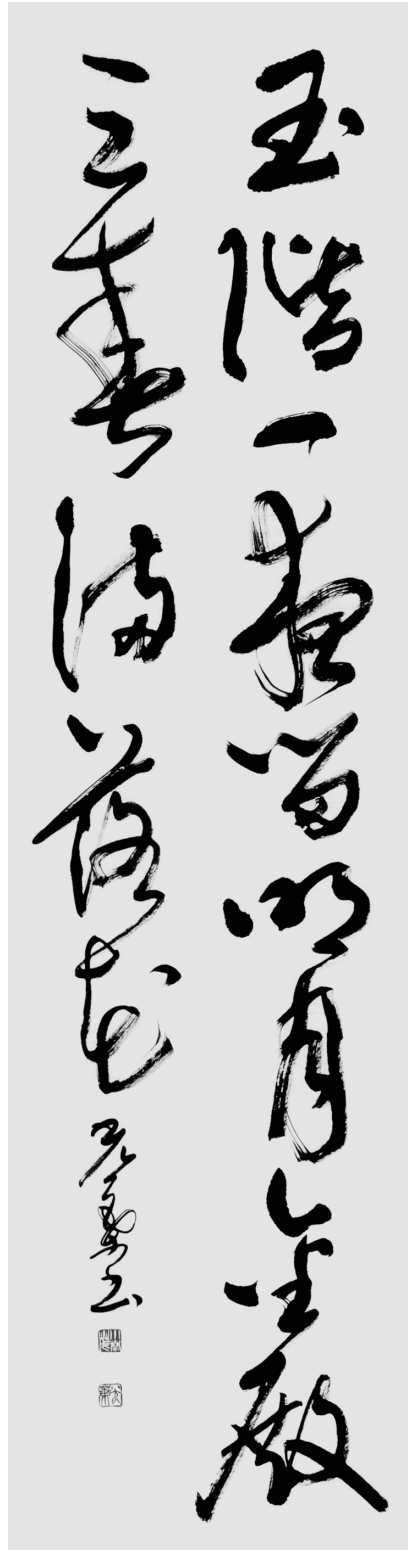 玉階一夜留明月金殿
三春満落花
書